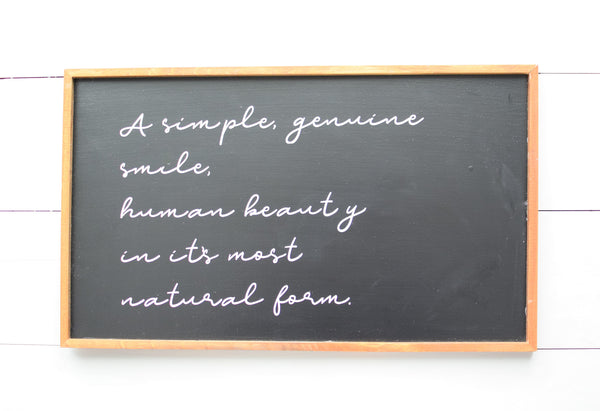 A simple, genuine
smile,
human beauty
in it's most
natural form.